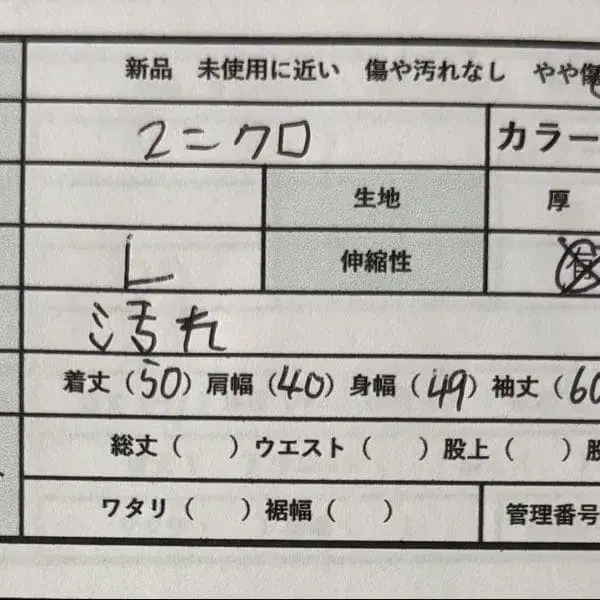 新品 未使用に近い 傷や汚れなし やや傷
ユニクロ カラー
生地 厚
L 伸縮性 有
汚れ
着丈（50）肩幅（40）身幅（49）袖丈（60
総丈（ ）ウエスト（ ）股上（ ）股
ワタリ（ ）裾幅（ ） 管理番号